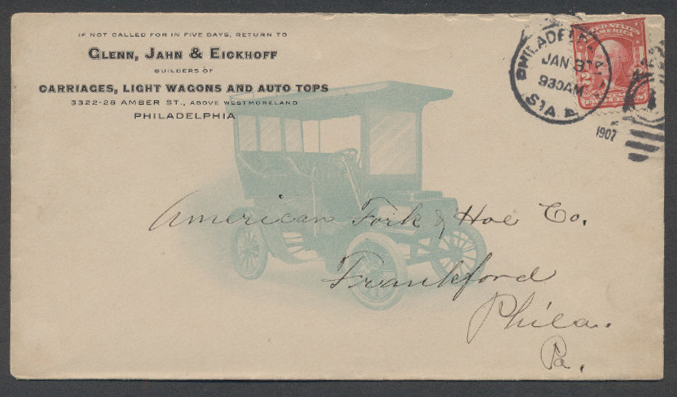 IF NOT CALLED FOR IN FIVE DAYS, RETURN TO
GLENN, JAHN & EICKHOFF
BUILDERS OF
CARRIAGES, LIGHT WAGONS AND AUTO TOPS
3322-28 AMBER ST., ABOVE WESTMORELAND
PHILADELPHIA
JAN 3
930AM
STA E
1907
UNITED STATES
AMERICA
American Fork & Hoe Co.
Frankford
Phila.
Pa.